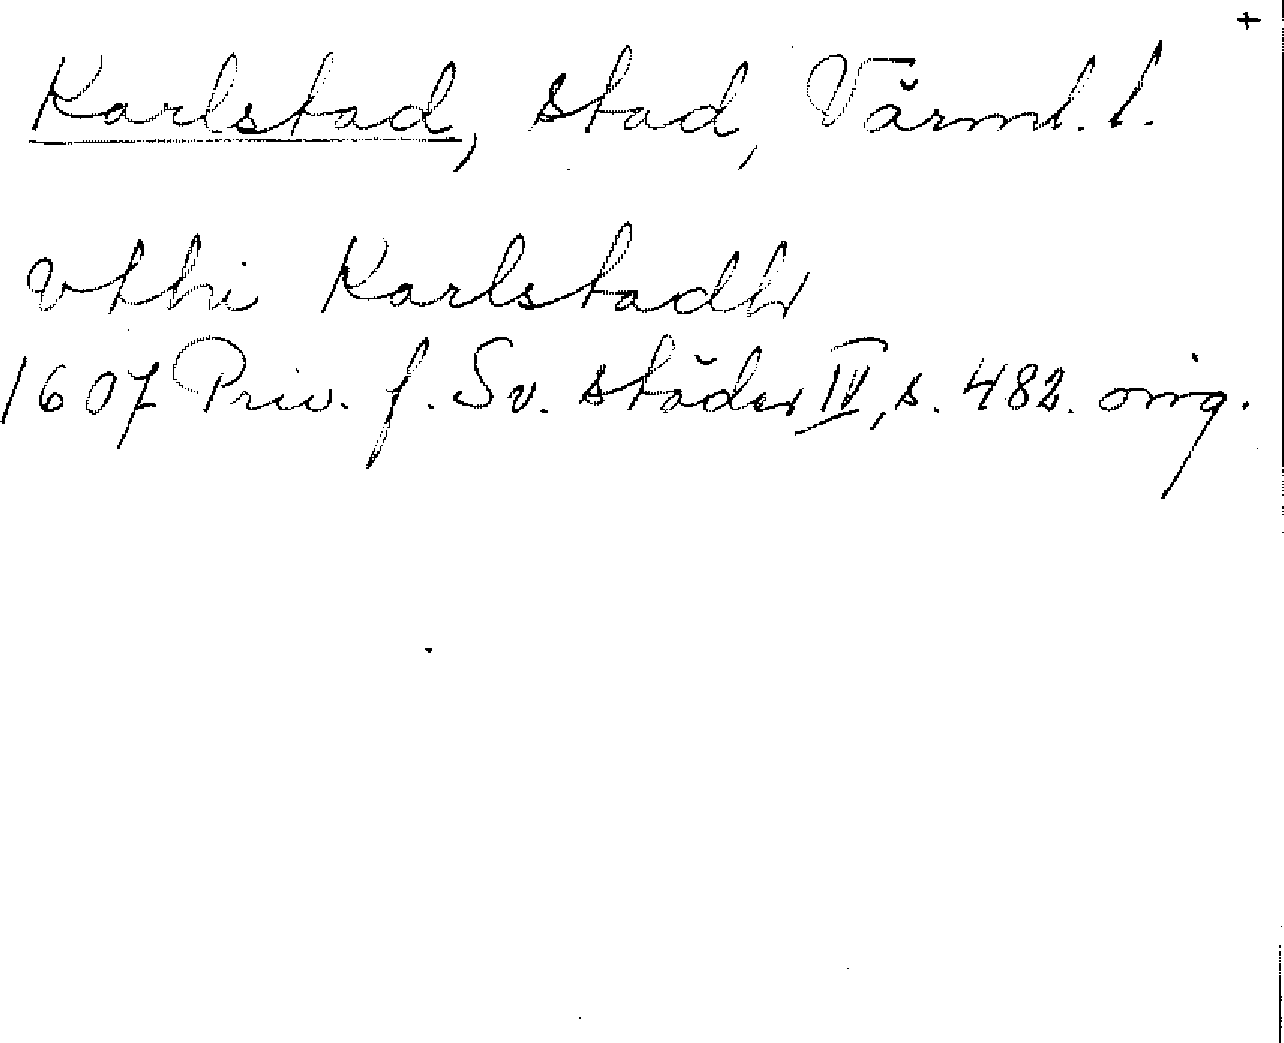 +
Karlstad, stad, Värml. l.
vthi Karlstadh
1607 Priv. f. Sv. städer IV, s. 482. orig.